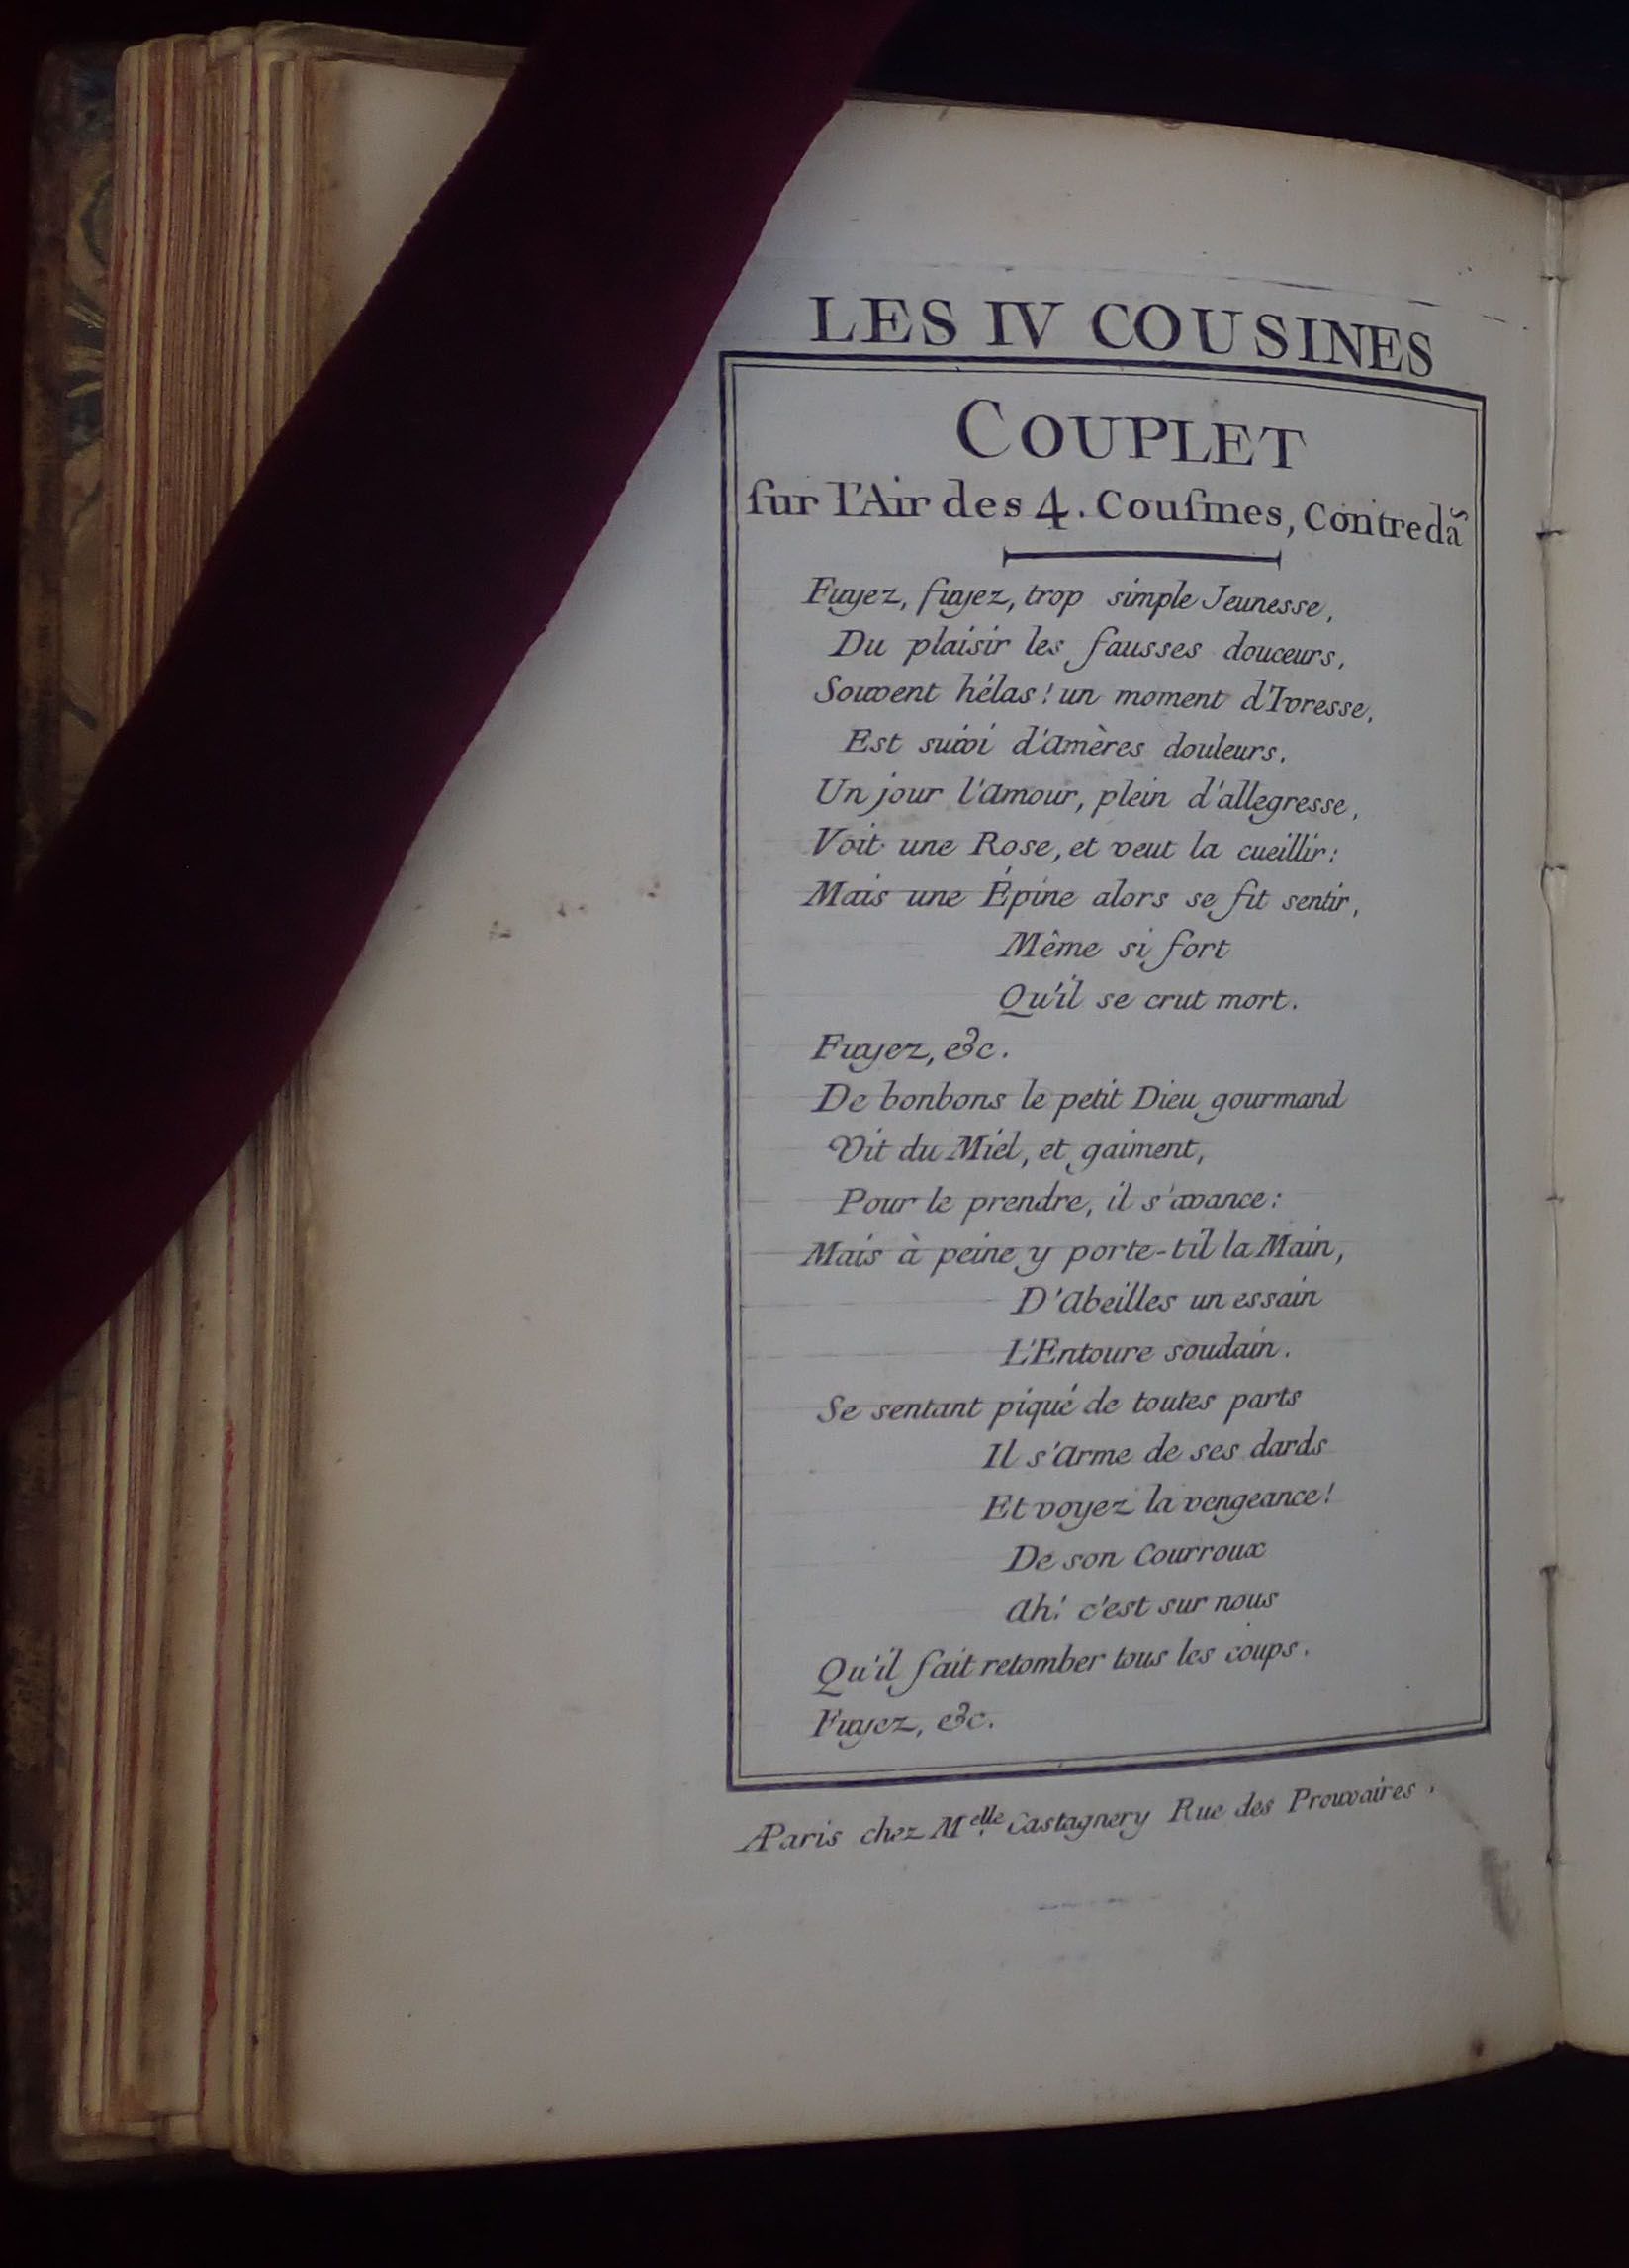 LES IV COUSINES
COUPLET
sur l'Air des 4. Cousines, Contredãs
Fuyez, fuyez, trop simple Jeunesse,
Du plaisir les fausses douceurs,
Souvent hélas! un moment d'Ivresse,
Est suivi d'amères douleurs.
Un jour l'amour, plein d'allegresse,
Voit une Rose, et veut la cueillir:
Mais une Épine alors se fit sentir,
Même si fort
Qu'il se crut mort.
Fuyez, &c.
De bonbons le petit Dieu gourmand
Vit du Miel, et gaiment,
Pour le prendre, il s'avance:
Mais à peine y porte-til la Main,
D'abeilles un essain
L'Entoure soudain.
Se sentant piqué de toutes parts
Il s'arme de ses dards
Et voyez la vengeance!
De son Courroux
ah! c'est sur nous
Qu'il fait retomber tous les coups.
Fuyez, &c.
A Paris chez M.elle Castagnery Rue des Prouvaires.